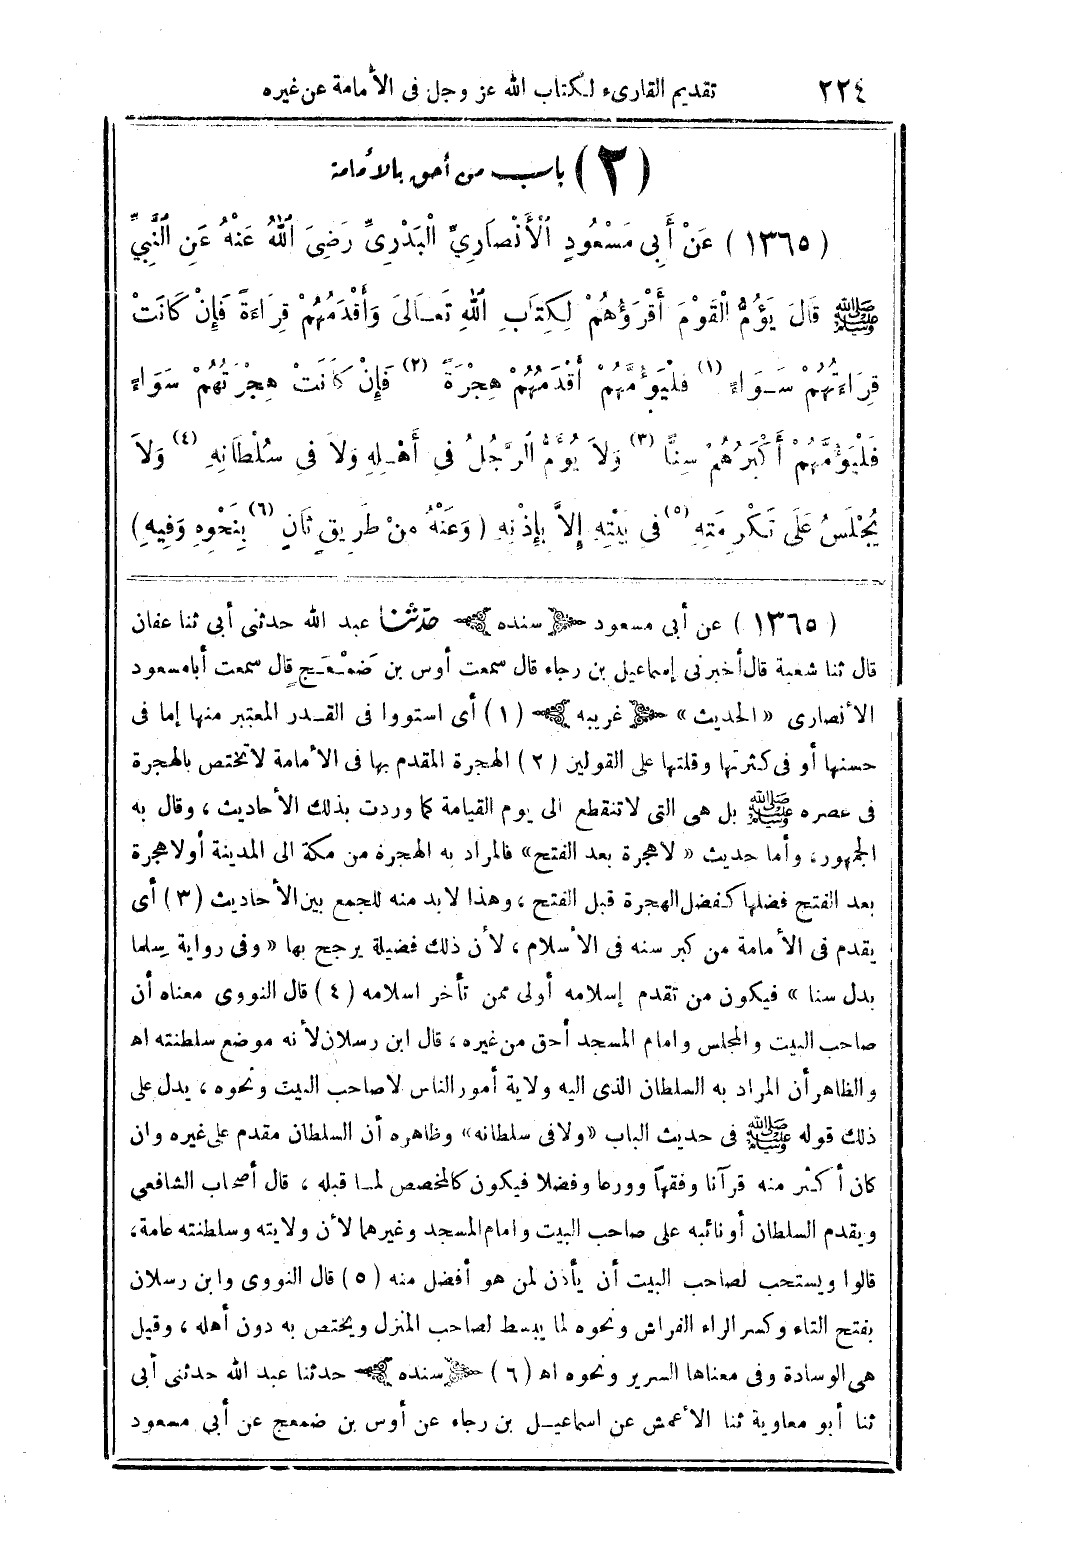 ٢٢٤ تقديم القارىء لكتاب الله عز وجل فى الأمامة عن غيره
(٢) باب من أحق بالأمامة
(١٣٦٥) عَنْ أَبِى مَسْعُودٍ الْأَنْصَارِيِّ الْبَدْرِىِّ رَضِىَ اللّٰهُ عَنْهُ عَنِ النَّبِىِّ
ﷺ قَالَ يَؤُمُّ الْقَوْمَ أَقْرَؤُهُمْ لِكِتَابِ اللّٰهِ تَعَالَىَ وَأَقْدَمُهُمْ قِرَاءَةً فَإِنْ كَانَتْ
قِرَاءَتُهُمْ سَوَاءً (١) فَلْيَؤُمَّهُمْ أَقْدَمُهُمْ هِجْرَةً (٢) فَإِنْ كَانَتْ هِجْرَتُهُمْ سَوَاءً
فَلْيَؤُمَّهُمْ أَكْبَرُهُمْ سِنًّا (٣) وَلاَ يُؤَمُّ الرَّجُلُ فِى أَهْلِهِ وَلاَ فِى سُلْطَانِهِ (٤) وَلاَ
يُجْلَسُ عَلَى تَكْرِمَتِهِ (٥) فِى بَيْتِهِ إِلاَّ بِإِذْنِهِ (وَعَنْهُ مِنْ طَرِيقٍ ثَانٍ (٦) بِنَحْوِهِ وَفِيهِ)
(١٣٦٥) عن أبى مسعود ﴿سنده﴾ حدثنا عبد الله حدثنى أبى ثنا عفان
قال ثنا شعبة قال أخبرنى إسماعيل بن رجاء قال سمعت أوس بن ضَمْعَجٍ قال سمعت أبا مسعود
الأنصارى «الحديث» ﴿غريبه﴾ (١) أى استووا فى القدر المعتبر منها إما فى
حسنها أو فى كثرتها وقلتها على القولين (٢) الهجرة المقدم بها فى الأمامة لا تختص بالهجرة
فى عصره ﷺ بل هى التى لا تنقطع الى يوم القيامة كما وردت بذلك الأحاديث، وقال به
الجمهور، وأما حديث «لاهجرة بعد الفتح» فالمراد به الهجرة من مكة الى المدينة أولاهجرة
بعد الفتح فضلها كفضل الهجرة قبل الفتح، وهذا لابد منه للجمع بين الأحاديث (٣) أى
يقدم فى الأمامة من كبر سنه فى الأسلام، لأن ذلك فضيلة يرجح بها «وفى رواية سِلما
بدل سنا» فيكون من تقدم إسلامه أولى ممن تأخر اسلامه (٤) قال النووى معناه أن
صاحب البيت والمجلس وامام المسجد أحق من غيره، قال ابن رسلان لأنه موضع سلطنته اه
والظاهر أن المراد به السلطان الذى اليه ولاية أمور الناس لا صاحب البيت ونحوه، يدل على
ذلك قوله ﷺ فى حديث الباب «ولافى سلطانه» وظاهره أن السلطان مقدم على غيره وان
كان أكثر منه قرآنا وفقهاً وورعا وفضلا فيكون كالمخصص لما قبله، قال أصحاب الشافعي
ويقدم السلطان أو نائبه على صاحب البيت وامام المسجد وغيرهما لأن ولايته وسلطنته عامة،
قالوا ويستحب لصاحب البيت أن يأذن لمن هو أفضل منه (٥) قال النووى وابن رسلان
بفتح التاء وكسر الراء الفراش ونحوه لما يبسط لصاحب المنزل ويختص به دون أهله، وقيل
هى الوسادة وفى معناها السرير ونحوه اه (٦) ﴿سنده﴾ حدثنا عبد الله حدثنى أبى
ثنا أبو معاوية ثنا الأعمش عن اسماعيل بن رجاء عن أوس بن ضمعج عن أبى مسعود